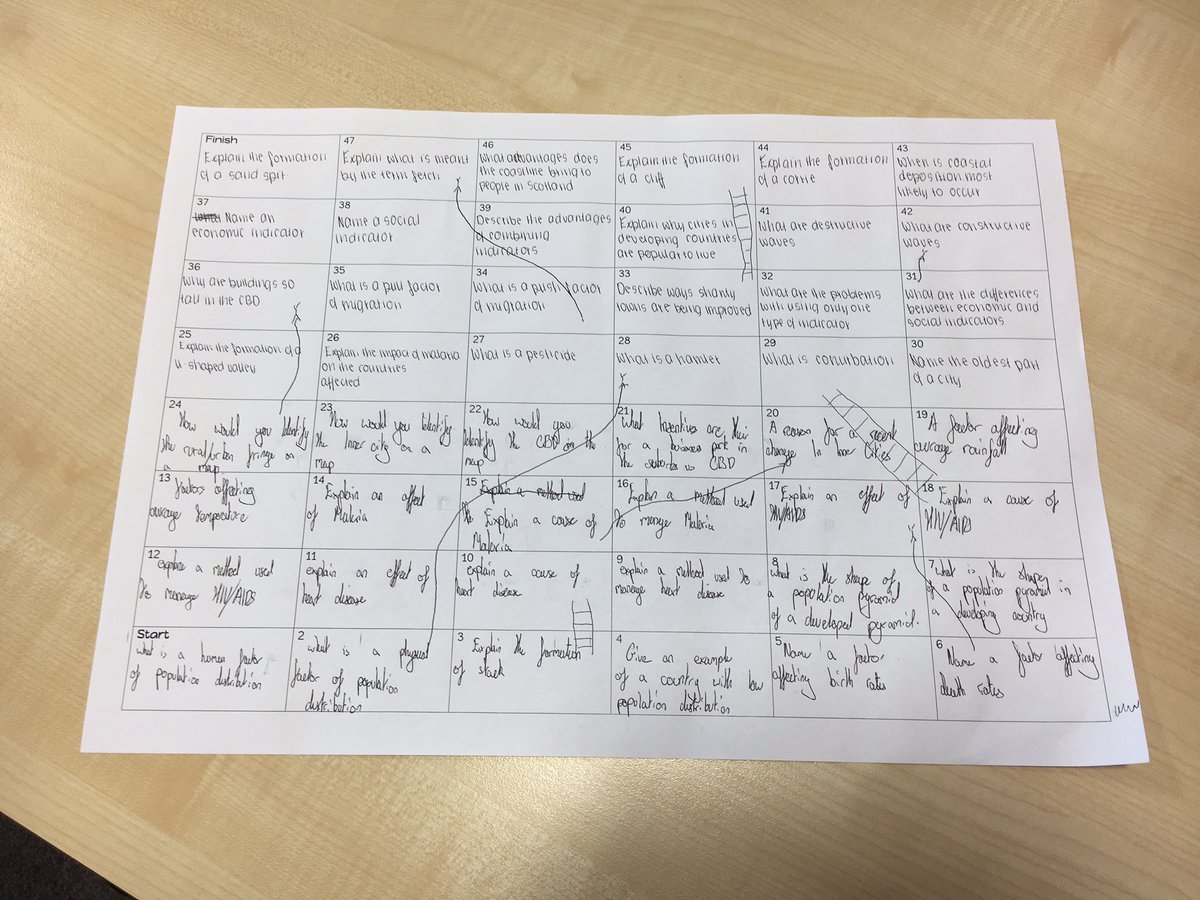 Finish
Explain the formation
of a sand spit
47
Explain what is meant
by the term fetch
46
What advantages does
the coastline bring to
people in scotland
45
Explain the formation
of a cliff
44
Explain the formation
of a corrie
43
When is coastal
deposition most
likely to occur
37
Name an
economic indicator
38
Name a social
indicator
39
Describe the advantages
of combining
indicators
40
Explain why cities in
developing countries
are popular to live
41
What are destructive
waves
42
What are constructive
waves
36
Why are buildings so
tall in the CBD
35
What is a pull factor
of migration
34
What is a push factor
of migration
33
Describe ways shanty
towns are being improved
32
What are the problems
with using only one
type of indicator
31
What are the differences
between economic and
social indicators
25
Explain the formation of a
u-shaped valley
26
Explain the impact of malaria
on the countries
affected
27
What is a pesticide
28
What is a hamlet
29
What is conurbation
30
Name the oldest part
of a city
24
How would you Identify
the rural/urban fringe on
a map
23
How would you Identify
the Inner city on a
map
22
How would you
Identify the CBD on the
map
21
What Inventives are their
for a business park in
the suburbs vs CBD
20
A reason for a recent
change In Cities
19
A factor affecting
average rainfall
13
factors affecting
average temperature
14
Explain an effect
of Malaria
15
Explain a method used
to Explain a cause of
Malaria
16
Explain a method used
to manage Malaria
17
Explain an effect of
HIV/AIDS
18
Explain a cause of
HIV/AIDS
12
explain a method used
to manage HIV/AIDS
11
explain an effect of
heart disease
10
explain a cause of
heart disease
9
explain a method used to
manage heart disease
8
what is the shape of
a population pyramid
of a developed pyramid.
7
what is the shape
of a population pyramid in
a developing country
Start
what is a human factor
of population distribution
2
what is a physical
factor of population
distribution
3
Explain the formation
of stack
4
Give an example
of a country with low
population distribution
5
Name a factor
affecting birth rates
6
Name a factor affecting
death rates